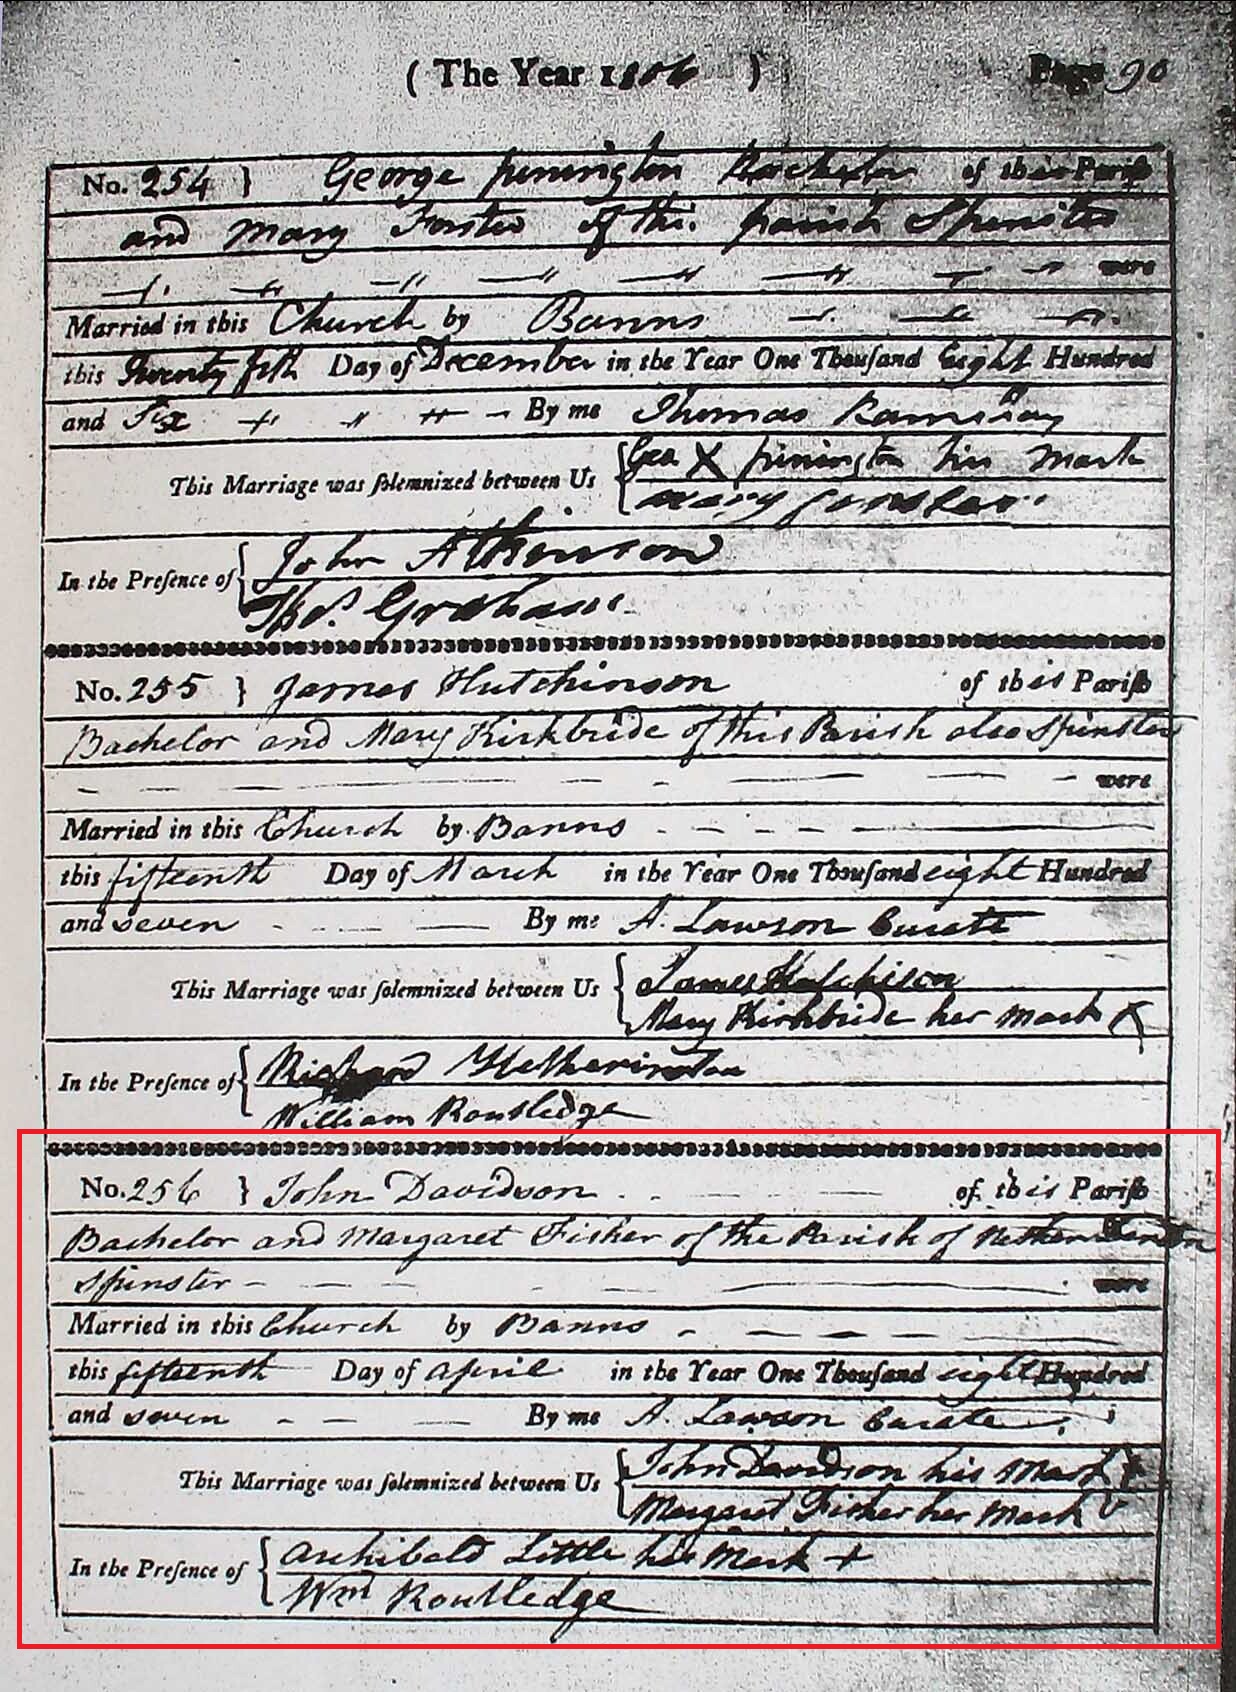 ( The Year 1806 ) Page 90
No. 254 } George pinington Bachelor of this Parish
and Mary Forster of this parish Spinster
were
Married in this Church by Banns
this Twenty fifth Day of December in the Year One Thousand Eight Hundred
and Six By me Thomas Ramshay
This Marriage was solemnized between Us { Geo X pinington his Mark
Mary
In the Presence of { John Atkinson
Thos. Graham
No. 255 } James Hutchinson of this Parish
Bachelor and Mary Kirkbride of this Parish also Spinster
were
Married in this Church by Banns
this fifteenth Day of March in the Year One Thousand eight Hundred
and seven By me A. Lawson Curate
This Marriage was solemnized between Us { James Hutchison
Mary Kirkbride her mark X
In the Presence of { Richard Hetherington
William Routledge
No. 256 } John Davidson of this Parish
Bachelor and Margaret Fisher of the Parish of Nether Denton
Spinster were
Married in this Church by Banns
this fifteenth Day of April in the Year One Thousand eight Hundred
and seven By me A. Lawson Curate
This Marriage was solemnized between Us { John Davidson his Mark X
Margaret Fisher her Mark V
In the Presence of { Archibald Little his Mark +
Wm Routledge